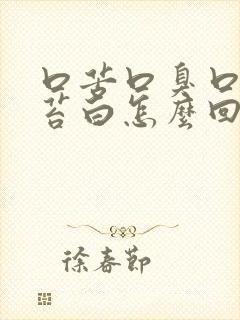 口苦口臭口
苔白怎麼回
徐春節